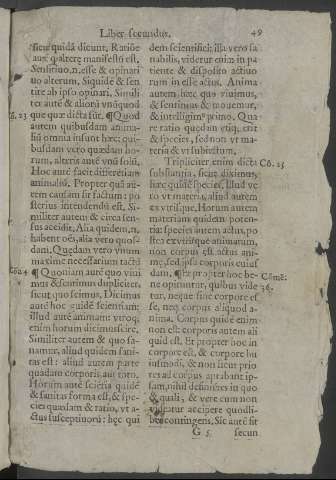 Liber secundus. 49
sicut quidā dicunt, Ratiōe
aūt q̃ altere manifestū est.
Sensitiuo.n.esse & opinari
uo alterum, Siquidē & sen
tire ab ipso opinari. Simili
ter autē & aliorū vnūquod
Cō. 23 que quæ dicta sūt. ¶Quod
autem quibusdam anima-
liū omnia insunt hæc: qui-
busdam vero quædam ho-
rum, alteris autē vnū solū,
Hoc autē facit differētiam
animaliū. Propter quā au-
tem causam sit factum: po
sterius intendendū est. Si-
militer autem & circa sen-
sus accidit. Alia quidem.n.
habent oēs, alia vero quos-
dam. Quedam vero vnum
maxime necessarium tactū
Cō. 24 ¶ Quoniam autē quo viui
mus & sentimus dupliciter,
sicut quo scimus, Dicimus
autē hoc quidē scientiam:
illud autē animam: vtroq;
enim horum dicimus scire.
Similiter autem & quo sa-
namur, aliud quidem sani-
tas est: aliud autem parte
quadam corporis aut toto.
Horum autē sciētia quidē
& sanitas forma est, & spe-
cies quædam & ratio, vt a-
ctus susceptiuorū: hęc qui
dem scientifici: illa vero sa
nabilis, videtur enim in pa
tiente & disposito actiuo
rum in esse actus. Anima
autem, hæc quo viuimus,
& sentimus & mouemur,
& intelligimꝰ primo. Qua
re ratio quædam etiq; erit
& species, sed non vt ma-
teria & vt subiectum.
Tripliciter enim dicta Cō. 25
substantia, sicut diximus,
hæc quidē species, Illud ve
ro vt materia, aliud autem
ex vtrisque. Horum autem
materiam quidem poten-
tia: species autem actus, po
stea ex vtrisque animatum,
non corpus est actus ani-
mę, sed ipsa corporis cuius
dam, ¶Et propter hoc be- Cōmē:
ne opinantur, quibus vide 36.
tur, neque sine corpore es
se, neq; corpus aliquod a-
nima. Corpus quidē enim
non est: corporis autem ali
quid est. Et propter hoc in
corpore est, & corpore hu
iusmodi, & non sicut prio
res ad corpus aptabant ip-
sam, nihil definiētes in quo
& quali, & vere cum non
videatur accipere quodli-
bet contingens, Sic autē fit
G 5 secun